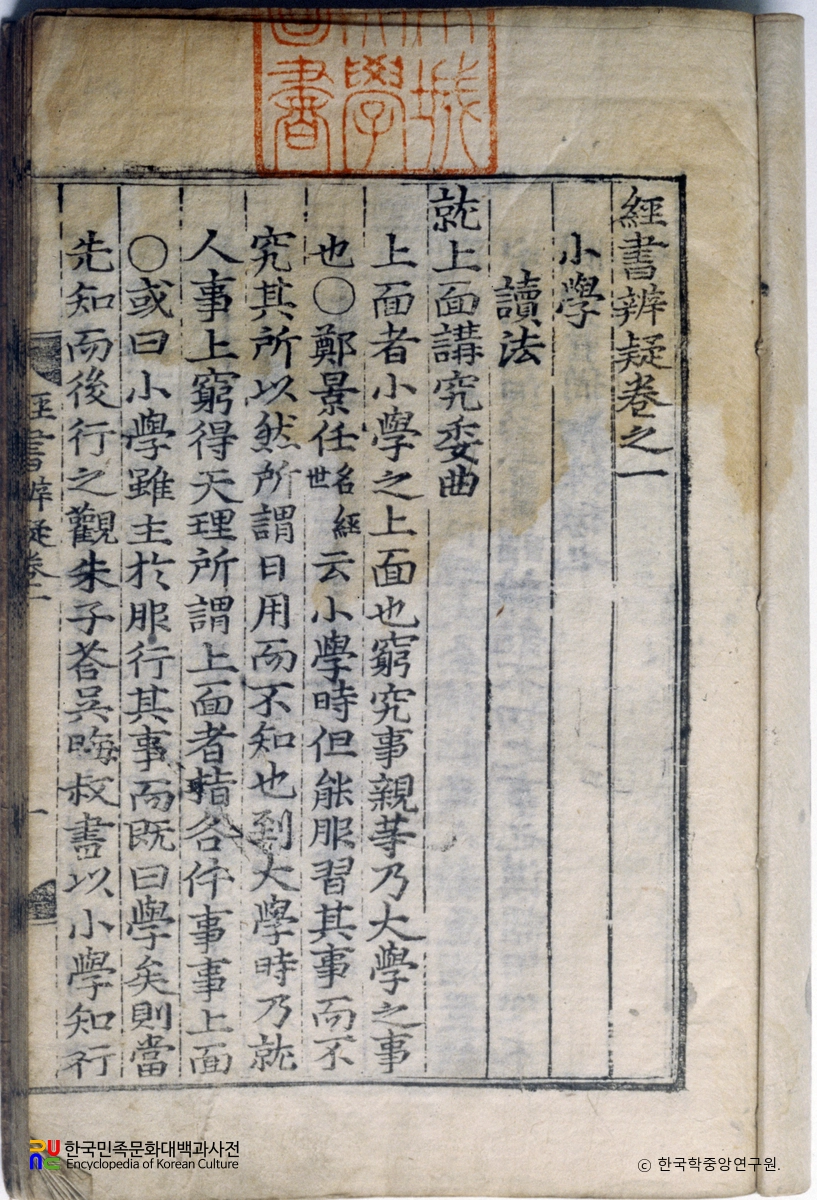 經書辨疑卷之一
小學
讀法
就上面講究委曲
上面者小學之上面也窮究事親等乃大學之事
也〇鄭景任名經世云小學時但能服習其事而不
究其所以然所謂日用而不知也到大學時乃就
人事上窮得天理所謂上面者指各件事事上面
〇或曰小學雖主於服行其事而旣曰學矣則當
先知而後行之觀朱子答吳晦叔書以小學知行
經書辨疑卷一
一
한국민족문화대백과사전
Encyclopedia of Korean Culture
© 한국학중앙연구원.